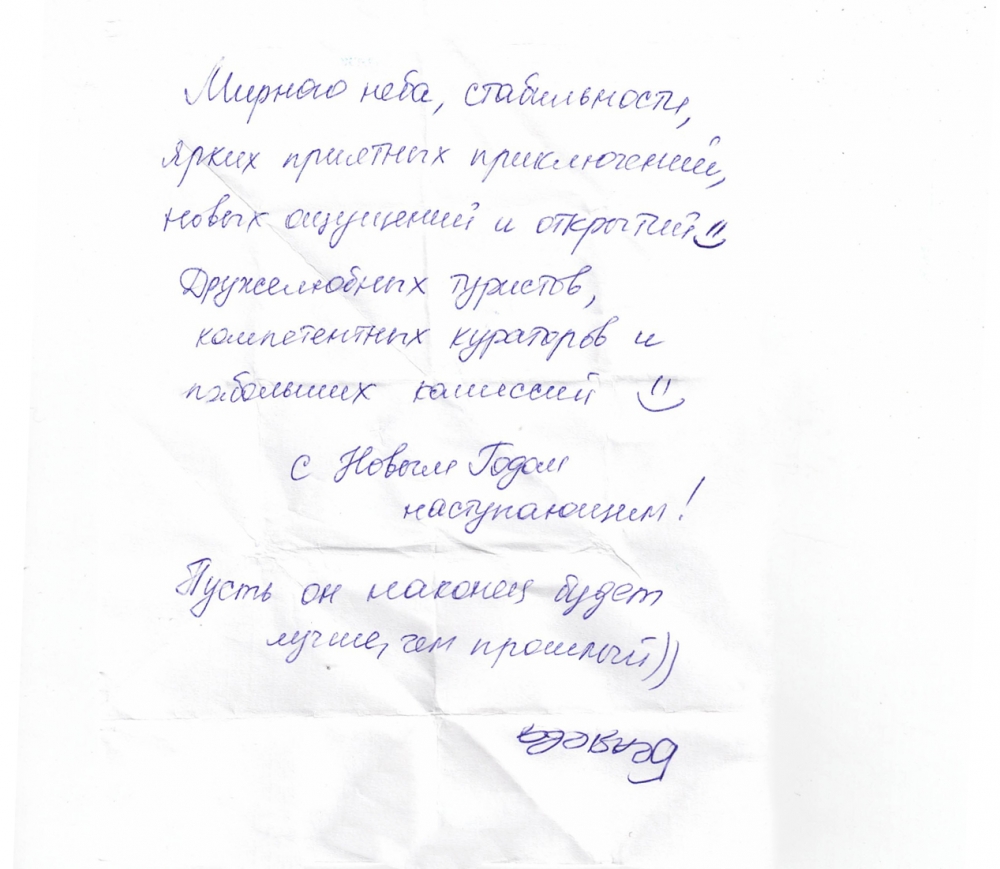 Мирного неба, стабильности,
ярких приятных приключений,
новых ощущений и открытий
Дружелюбных туристов,
компетентных кураторов и
побольших комиссий
с Новым Годом
наступающим!
Пусть он наконец будет
лучше, чем прошлый))
Беляева